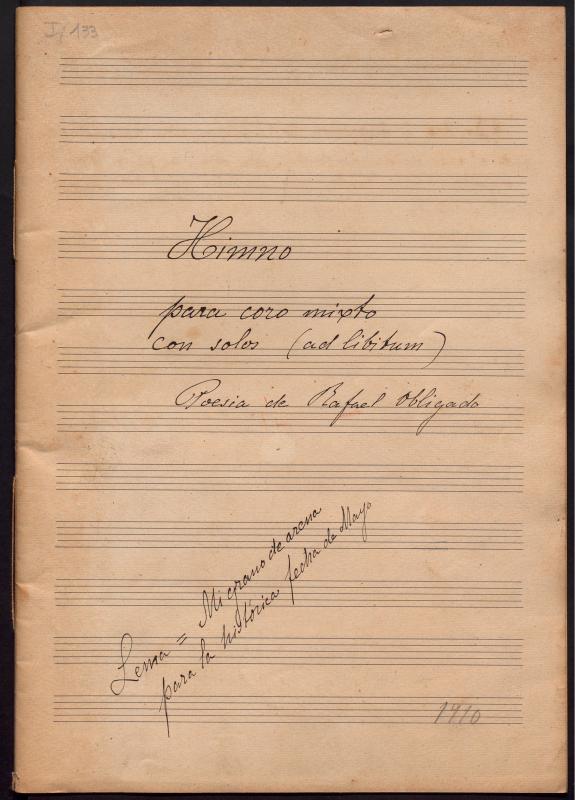 I/133
Himno
para coro mixto
con solos (ad libitum)
Poesia de Rafael Obligado
Lema = Mi grano de arena
para la histórica fecha de Mayo
1910